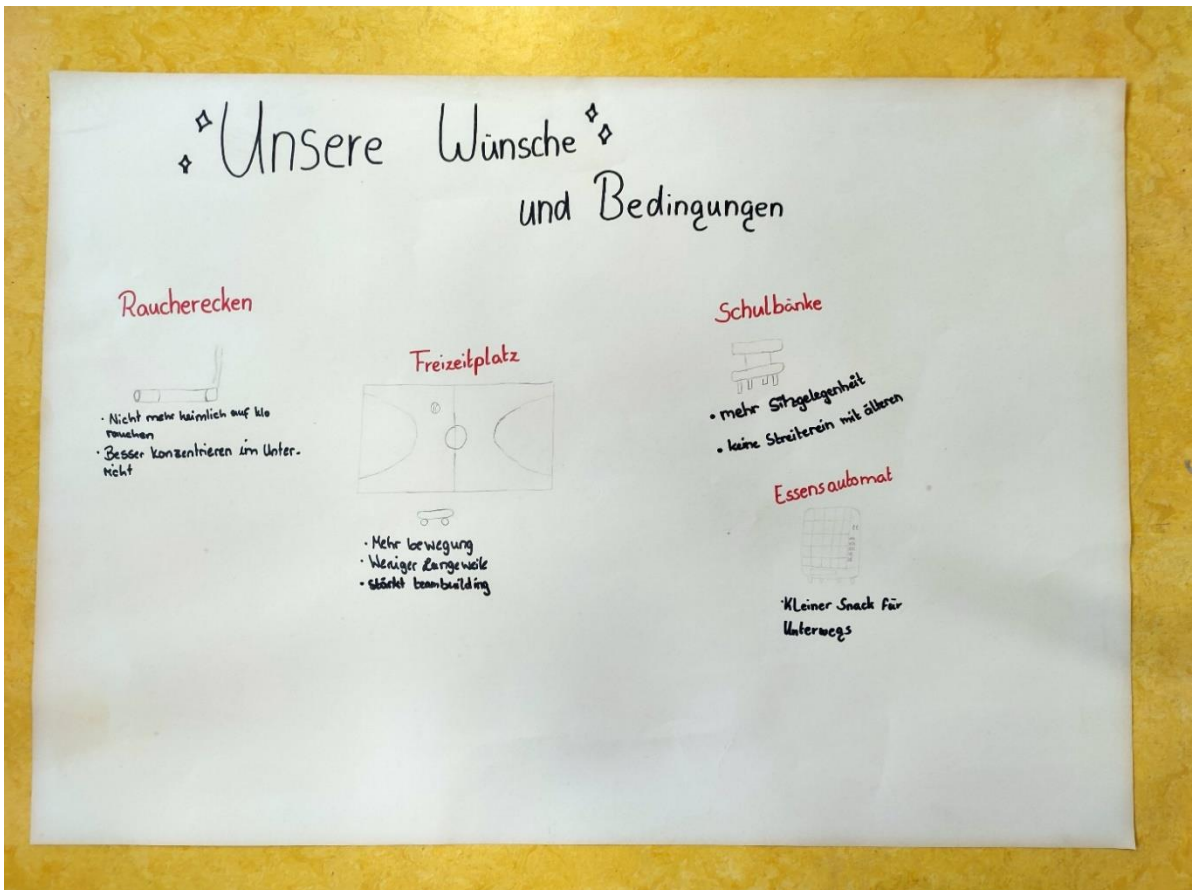 Unsere Wünsche
und Bedingungen
Raucherecken
· Nicht mehr heimlich auf klo
rauchen
· Besser konzentrieren im Unter-
richt
Freizeitplatz
· Mehr bewegung
· Weniger Langeweile
· stärkt teambuilding
Schulbänke
• mehr Sitzgelegenheit
• keine Streiterein mit älteren
Essensautomat
·Kleiner Snack für
Unterwegs